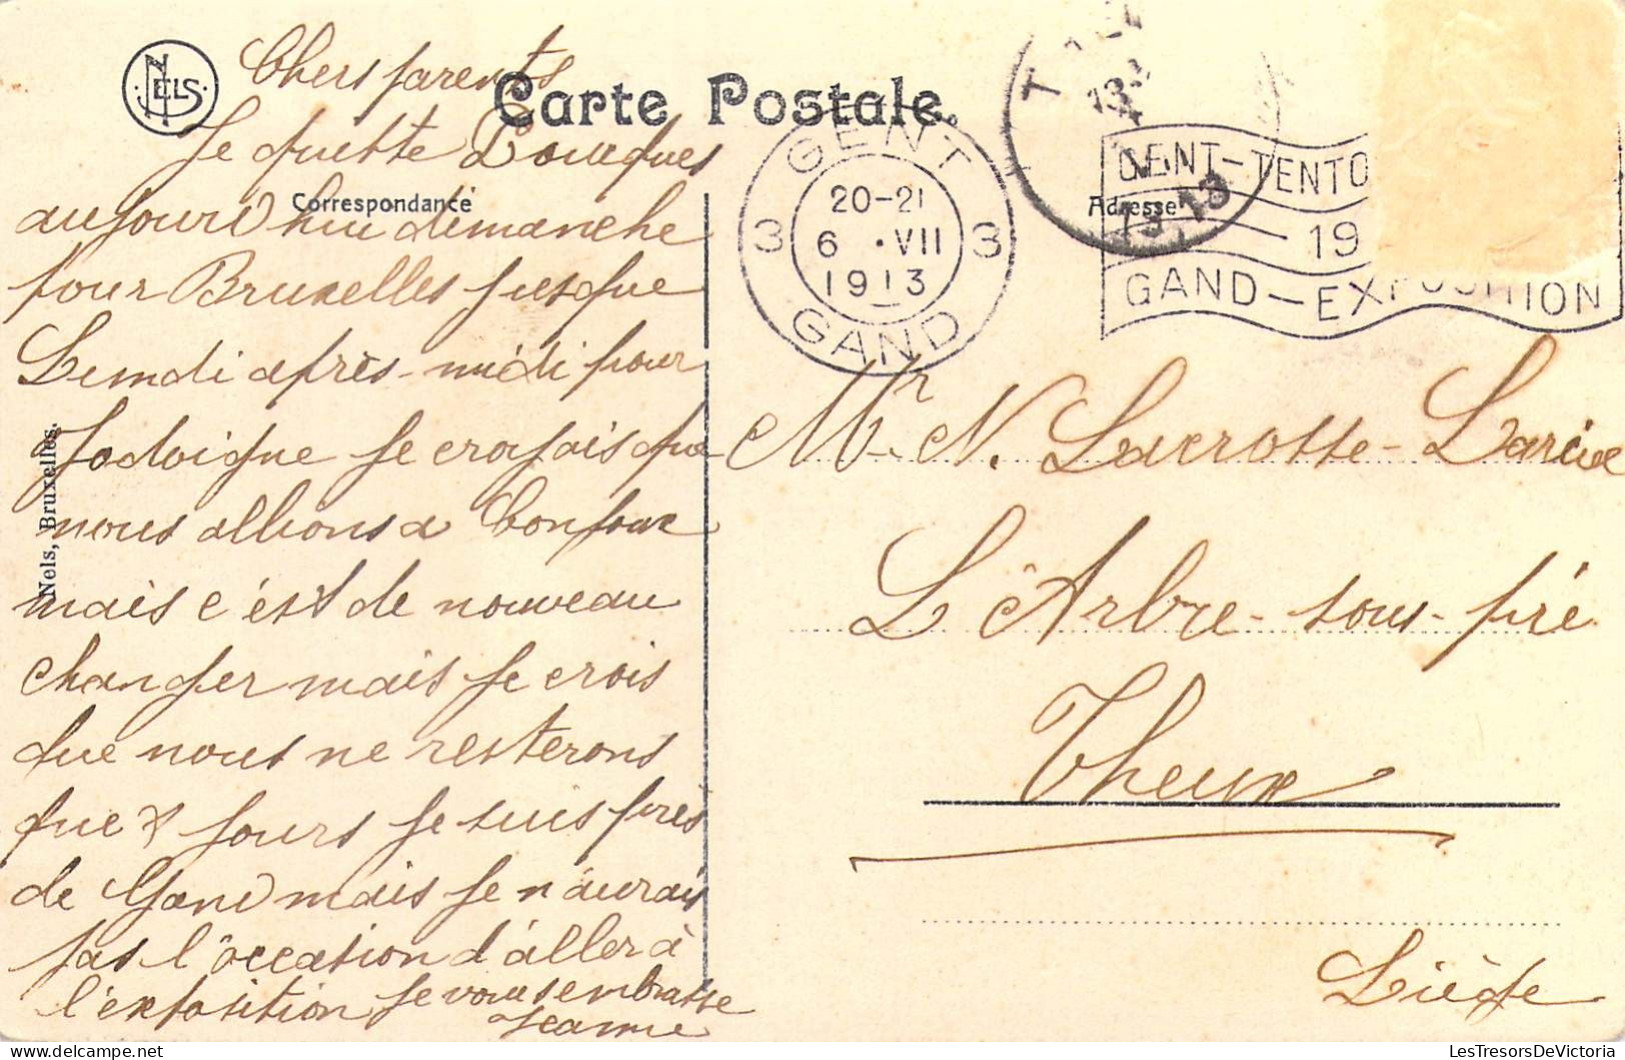 NELS
Carte Postale.
Correspondance
Adresse
Nels, Bruxelles.
GENT
3 20-21 3
6 . VII
1913
GAND
T
13 13
GENT-TENTO
19
GAND-EXPOSITION
Chers parents
Je quitte Loucques
aujourd hui dimanche
pour Bruxelles jusque
Lundi après-midi pour
Jodoigne je croyais que
nous allions a Confoux
mais c'ést de nouveau
changer mais je crois
que nous ne resterons
que jours je suis près
de Gand mais je n'aurais
pas l'occation d'aller à
l'exposition je vous embrasse
Jeanne
Mr N. Lacrosse-Larive
L'Arbre-sous-pré
Theux
Liège
LesTresorsDeVictoria